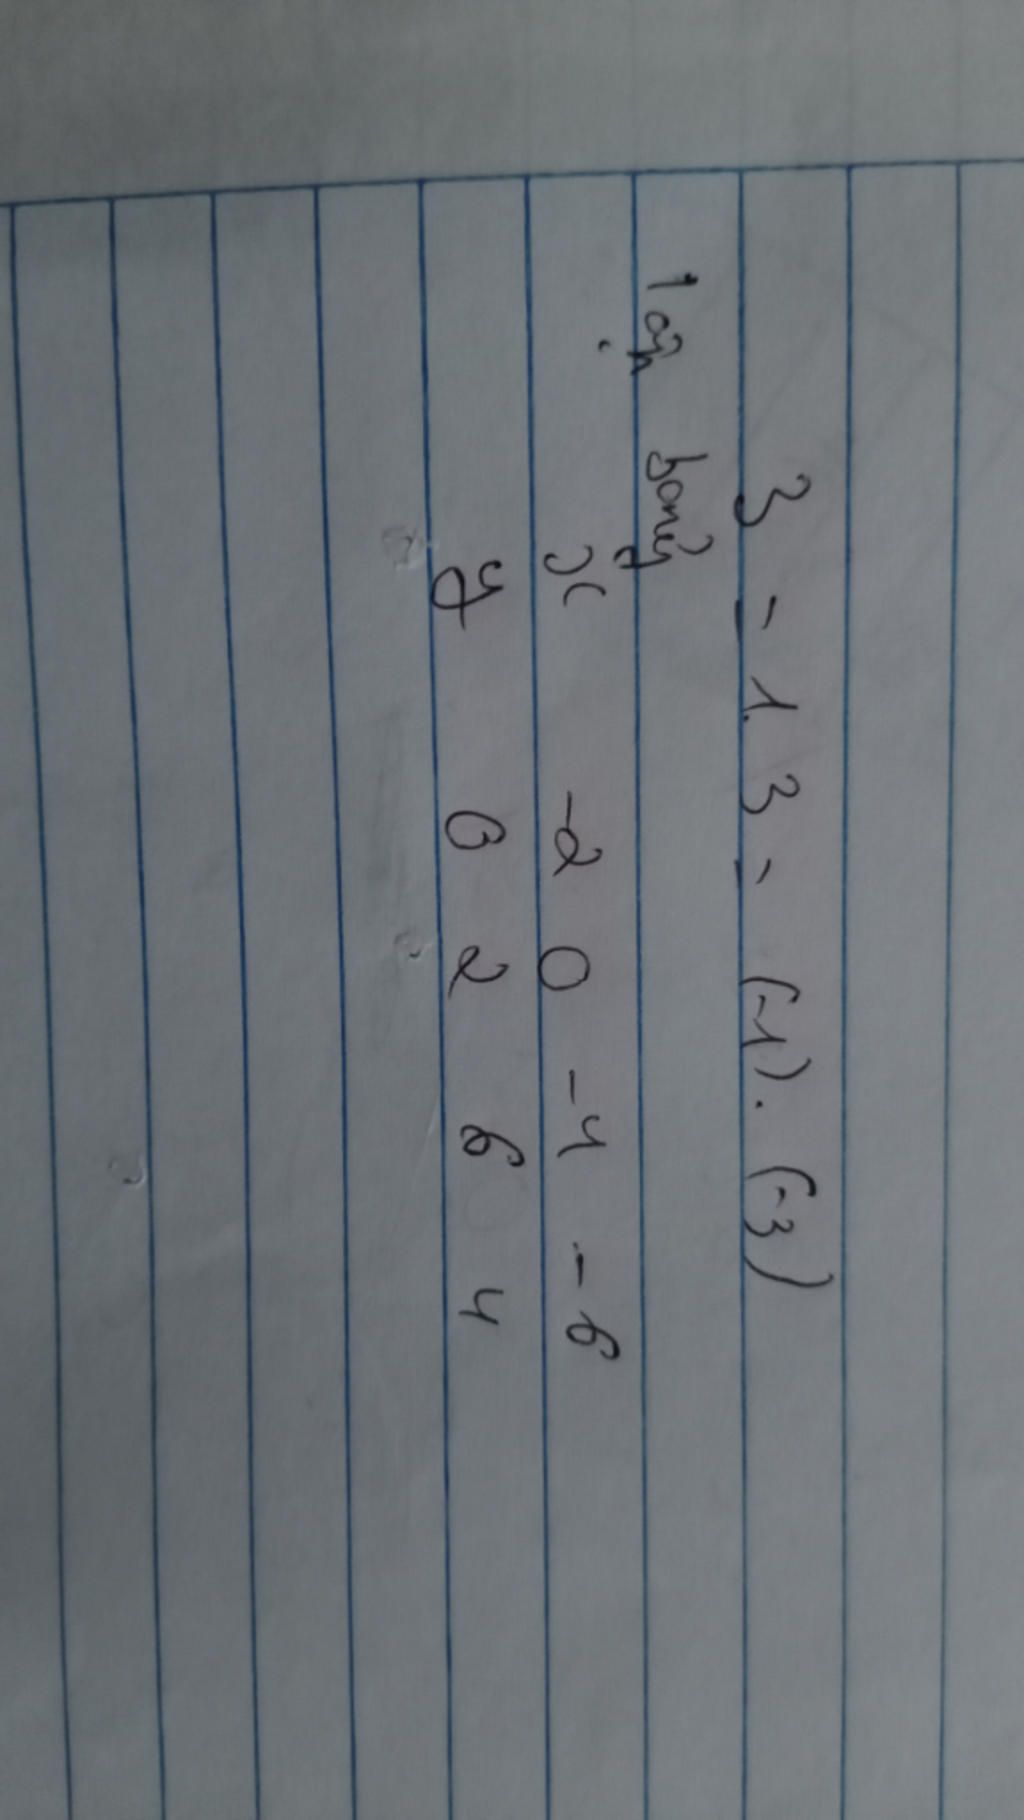 3 = 1.3 = (-1).(-3)
Lập bảng
x -2 0 -4 -6
y 0 2 6 4